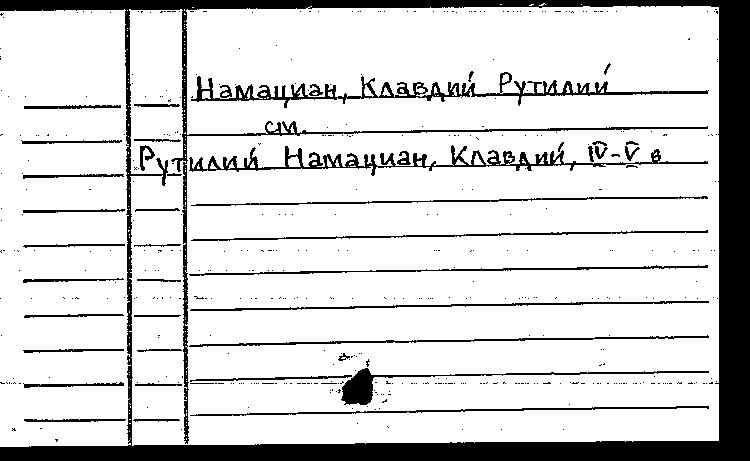 Намациан, Клавдий Рутилий
см.
Рутилий Намациан, Клавдий, IV-V в